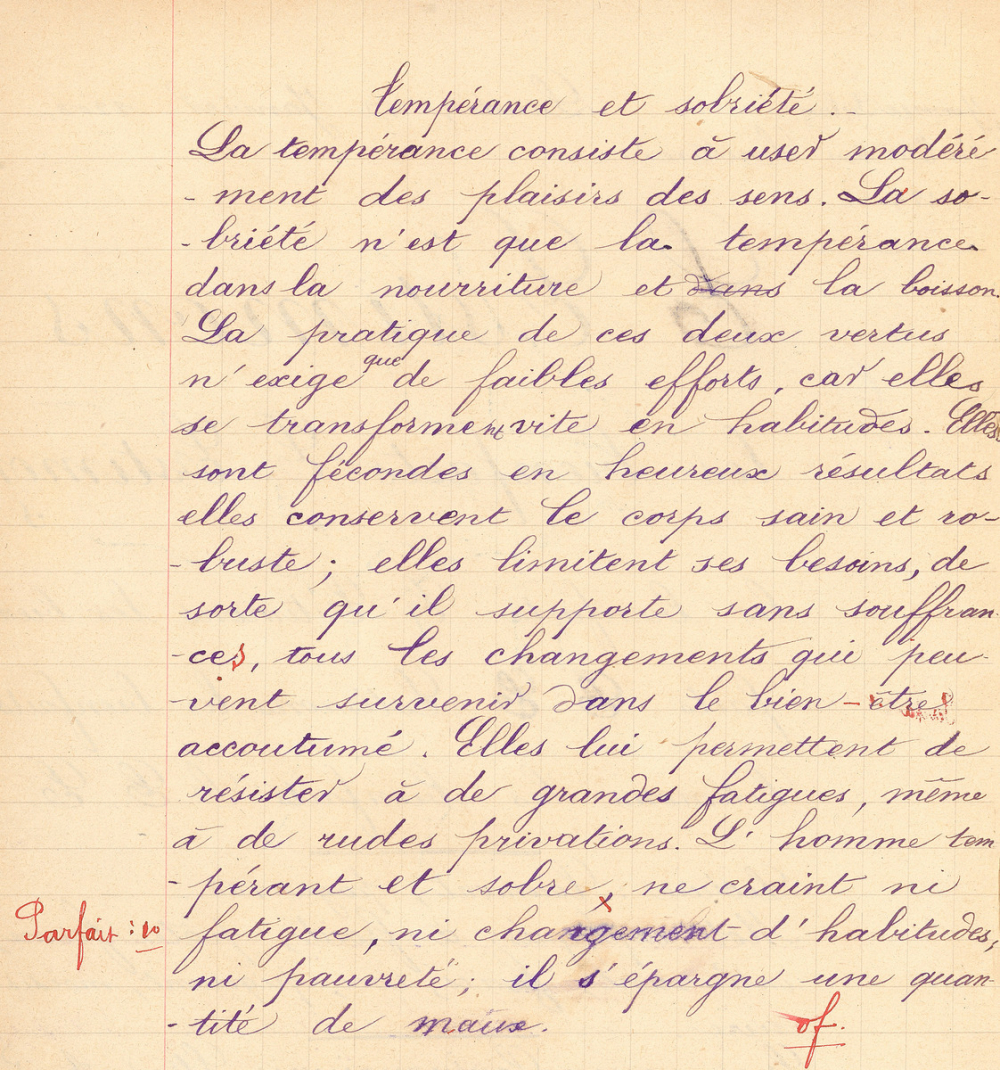 tempérance et sobriété.
La tempérance consiste à user modéré
-ment des plaisirs des sens. La so-
-briété n'est que la tempérance
dans la nourriture et dans la boisson.
La pratique de ces deux vertus
n'exige que de faibles efforts, car elles
se transforment vite en habitudes. Elles
sont fécondes en heureux résultats
elles conservent le corps sain et ro-
-buste ; elles limitent ses besoins, de
sorte qu'il supporte sans souffran-
-ces, tous les changements qui peu-
-vent survenir dans le bien-être
accoutumé. Elles lui permettent de
résister à de grandes fatigues, même
à de rudes privations. L'homme tem
-pérant et sobre, ne craint ni
Parfait : 10 fatigue, ni changement d'habitudes,
ni pauvreté ; il s'épargne une quan-
-tité de maux.